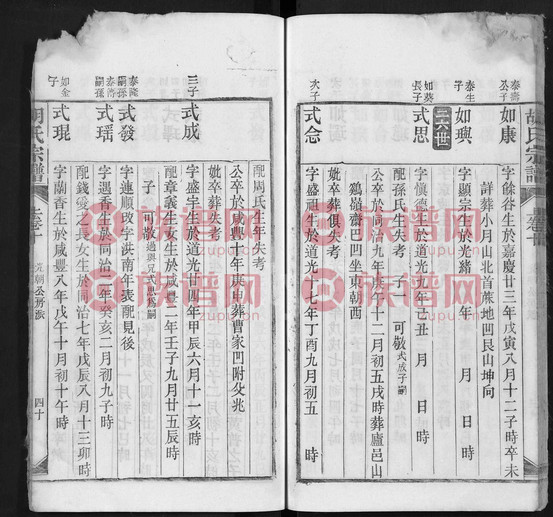 胡氏宗譜
泰濟公子
如康
字餘谷生於嘉慶廿三年戊寅八月十二子時卒未
詳葬小月山北首蔴地凹艮山坤向
泰生子
如璵
字顯宗生於光緒 年 月 日 時
二六世
如葵長子
式思
字慎德生於道光九年己丑 月 日 時
配孫氏生卒失考 子一 可敬 式成子嗣
公卒於同治九年庚午十二月初五戌時葬廬邑山
鷄嶺齋巴凹坐東朝西
妣卒葬俱失考
次子
式念
字盛祖生於道光十七年丁酉九月初五 時
配周氏生年失考
公卒於咸豐十年庚申葬曹家凹附父兆
妣卒葬失考
三子
式成
字盛宇生於道光廿四年甲辰六月十一亥時
配章義生女生於咸豐二年壬子九月廿五辰時
子一 可敬 過與兄式思爲嗣
泰濟嗣孫
式發
字連順改字洪南年表配見後
泰濟嗣孫
式瑶
字遇香生於同治二年癸亥二月初六亥時
配錢發之長女生於同治七年戊辰八月十三卯時
如金子
式琨
字蘭香生於咸豐八年戊午十月初十午時
胡氏宗譜
卷十
先朝公房派
四十
族谱网
族谱网